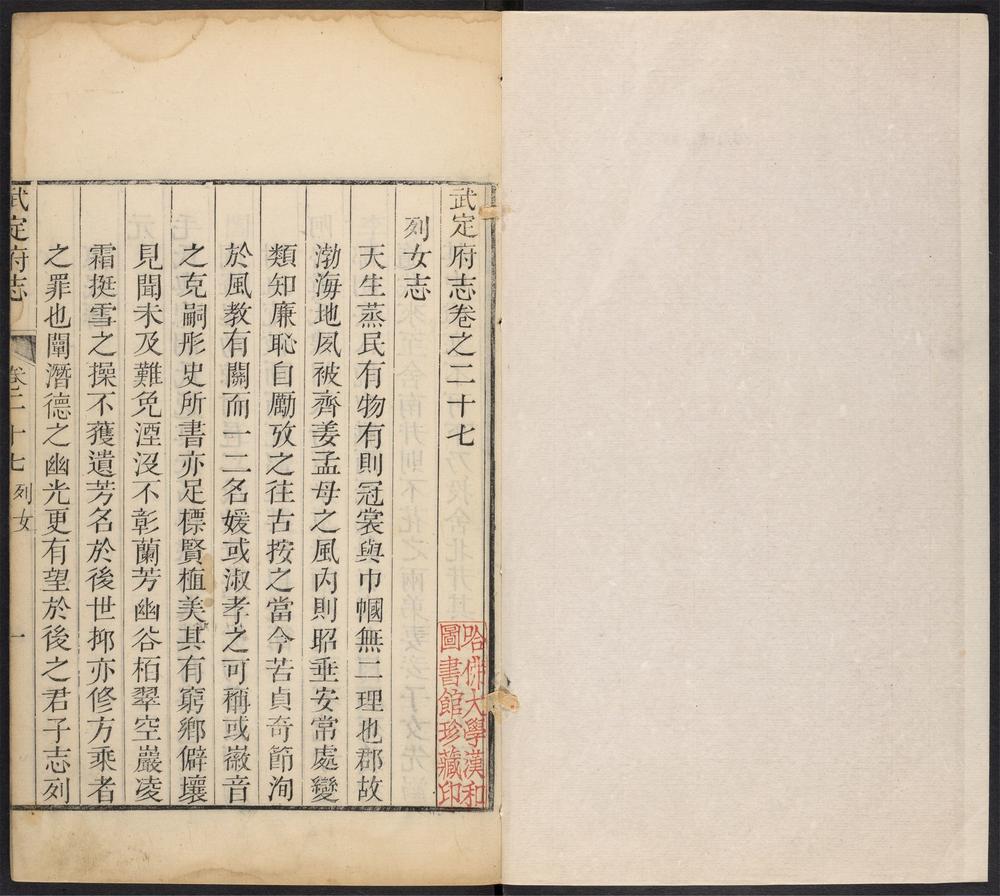 武定府志卷之二十七
列女志
天生蒸民有物有則冠裳與巾幗無二理也郡故
渤海地夙被齊姜孟母之風內則昭垂安常處變
類知廉恥自勵攷之往古按之當今苦貞奇節洵
於風教有關而一二名媛或淑孝之可稱或徽音
之克嗣彤史所書亦足標賢植美其有窮鄉僻壤
見聞未及難免湮沒不彰蘭芳幽谷栢翠空巖凌
霜挺雪之操不獲遺芳名於後世抑亦修方乘者
之罪也闡潛德之幽光更有望於後之君子志列
武定府志
卷二十七
列女
一
哈佛大學漢和
圖書館珍藏印